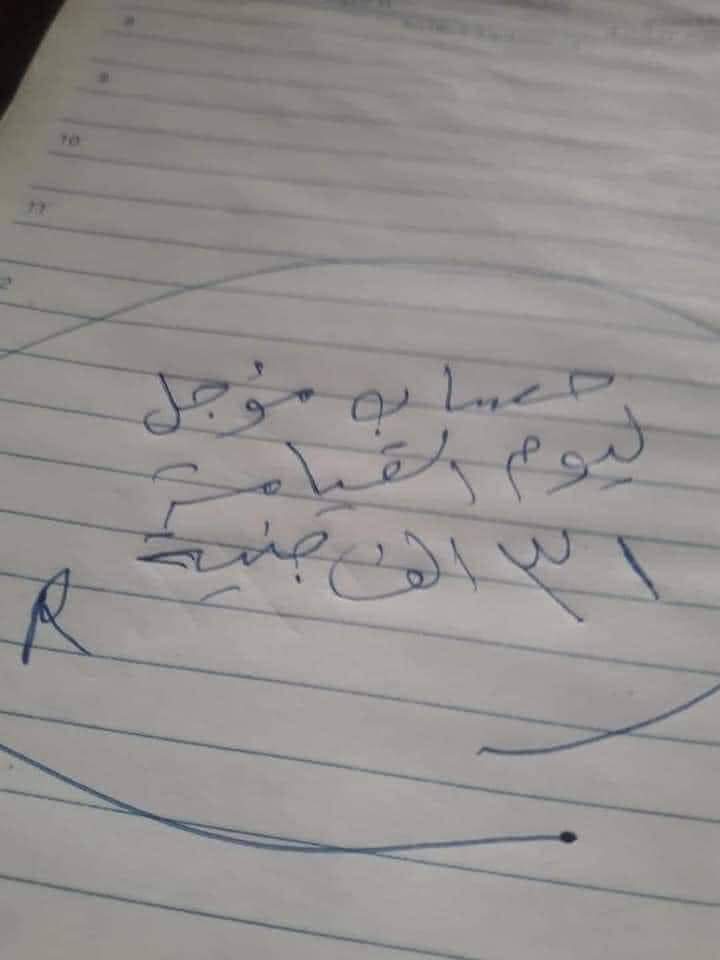 8
9
10
11
حساب مؤجل
ليوم القيامة
٣١ الف جنية
R